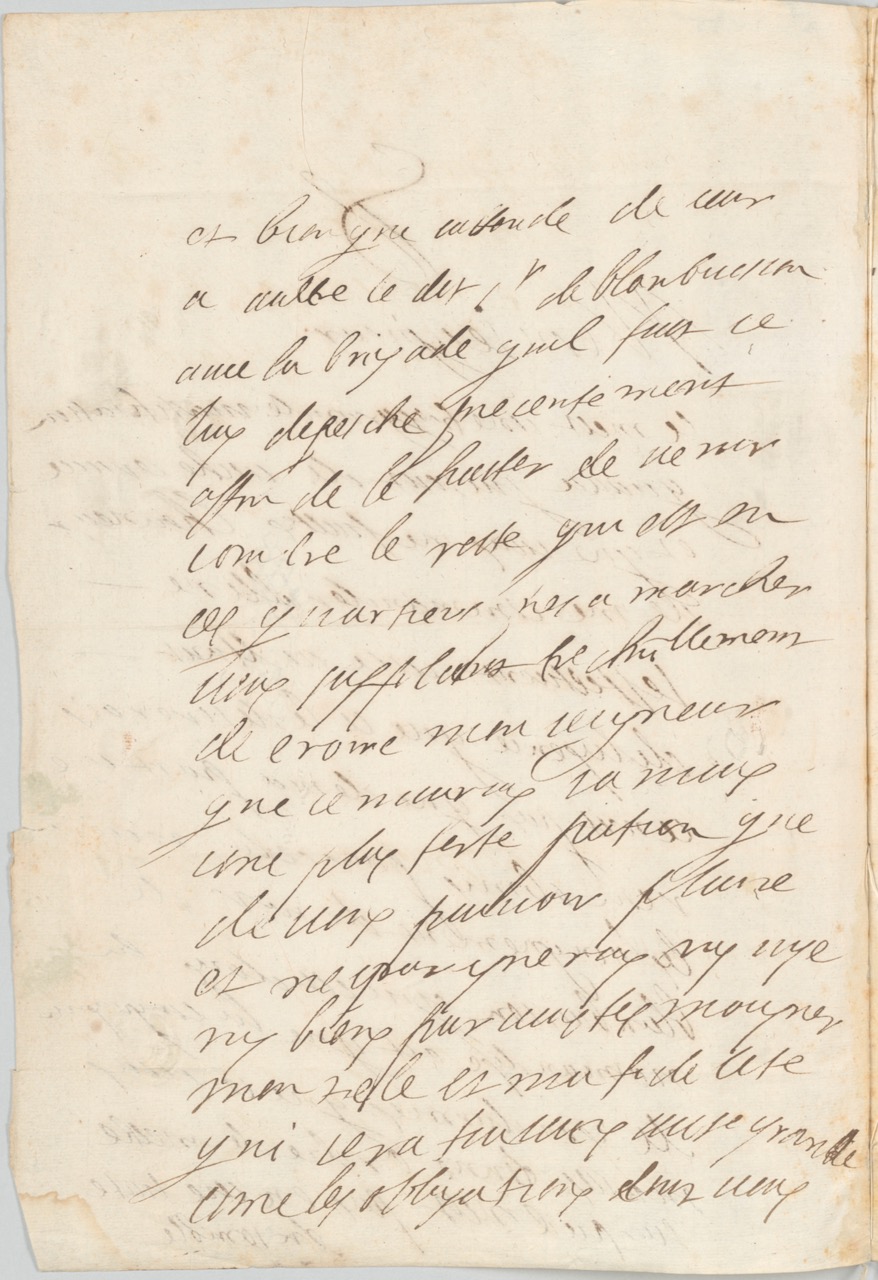 et bien que iatende de iour
a aultre le dit sr de blanbuisson
avec la brigade quil fust ie
luy depesche presentement
affin de le haster de venir
ioindre le reste qui est en
ces quartiers prest a marcher
vous suppliant tres humblement
de croire monseigneur
que ie nauray iamais
une plus forte passion que
de vous pouvoir plaire
et nespargneray ny vye
ny biens pour vous tesmoigner
mon zelle et ma fidelite
qui sera tousiours aussy grande
que les obligations dont vous